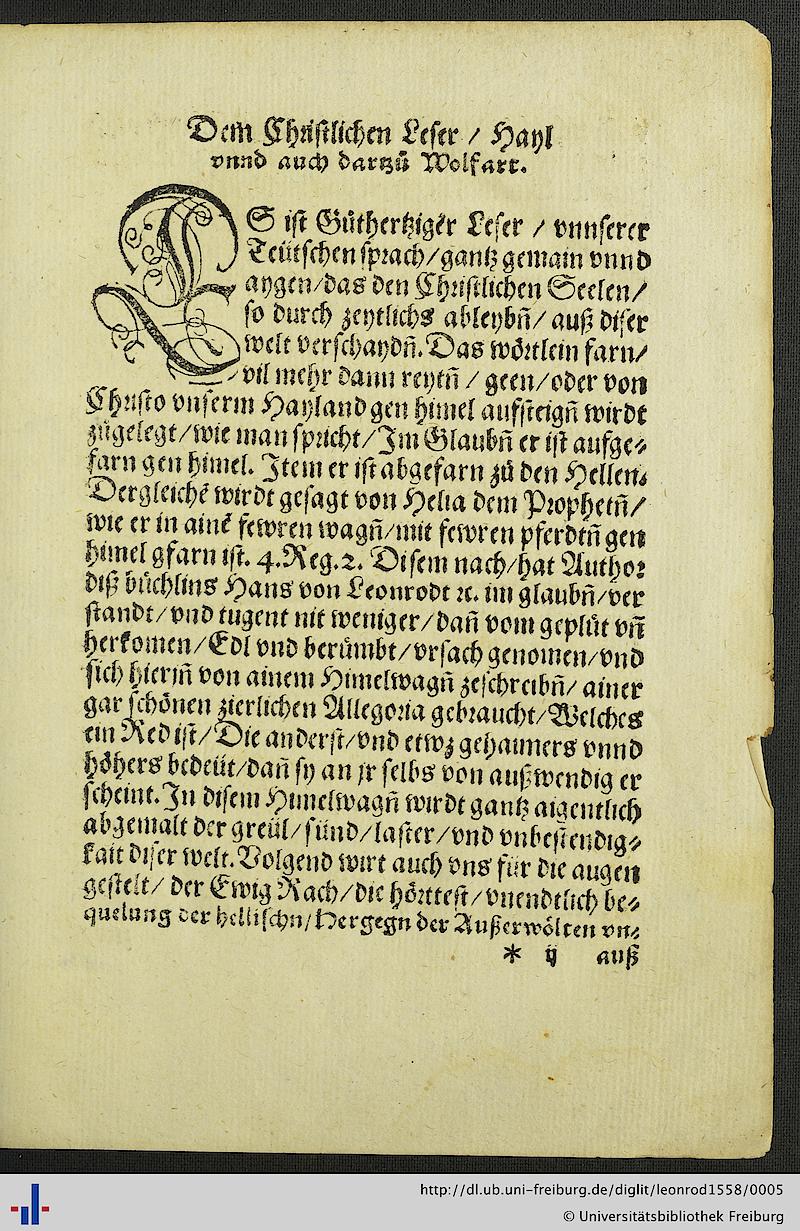 Dem Christlichen Leser / Hayl
vnnd auch dartzů Wolfart.
ES ist Gůthertziger Leser / vnnserer
Teütschen sprach/gantz gemain vnnd
aygen/das den Christlichen Seelen/
so durch zeytlichs ableybñ/ auß diser
welt verschaydñ. Das wörtlein farn/
vil mehr dann reytñ / geen/oder von
Christo vnserm Hayland gen himel aufsteigñ wirdt
zůgelegt/wie man spricht/Im Glaubñ er ist aufge⸗
farn gen himel. Item er ist abgefarn zů den Hellen.
Dergleichē wirdt gesagt von Helia dem Prophetñ/
wie er in ainē fewren wagñ/mit fewren pferdtñ gen
himel gfarn ist. 4.Reg.2. Disem nach/hat Author
diß bůchlins Hans von Leonrodt ꝛc. im glaubñ/ver
standt/vnd tugent nit weniger/dañ vom geplůt vñ
herkomen/Edl vnd berůmbt/vrsach genomen/vnd
sich hierjñ von ainem Himelwagñ zeschreibñ/ ainer
gar schönen zierlichen Allegoria gebraucht/Welches
ein Red ist/Die anderst/vnd etwz gehaimers vnnd
höhers bedeüt/dañ sy an jr selbs von außwendig er
scheint. In disem Himelwagñ wirdt gantz aigentlich
abgemalt der greül/sünd/laster/vnd vnbestendig⸗
kait diser welt. Volgend wirt auch vns für die augen
gestelt/ der Ewig Rach/die hörttest/vnendtlich be⸗
quelung der hellischn/Hergegn der Außerwölten vn⸗
* ij auß
http://dl.ub.uni-freiburg.de/diglit/leonrod1558/0005
© Universitätsbibliothek Freiburg